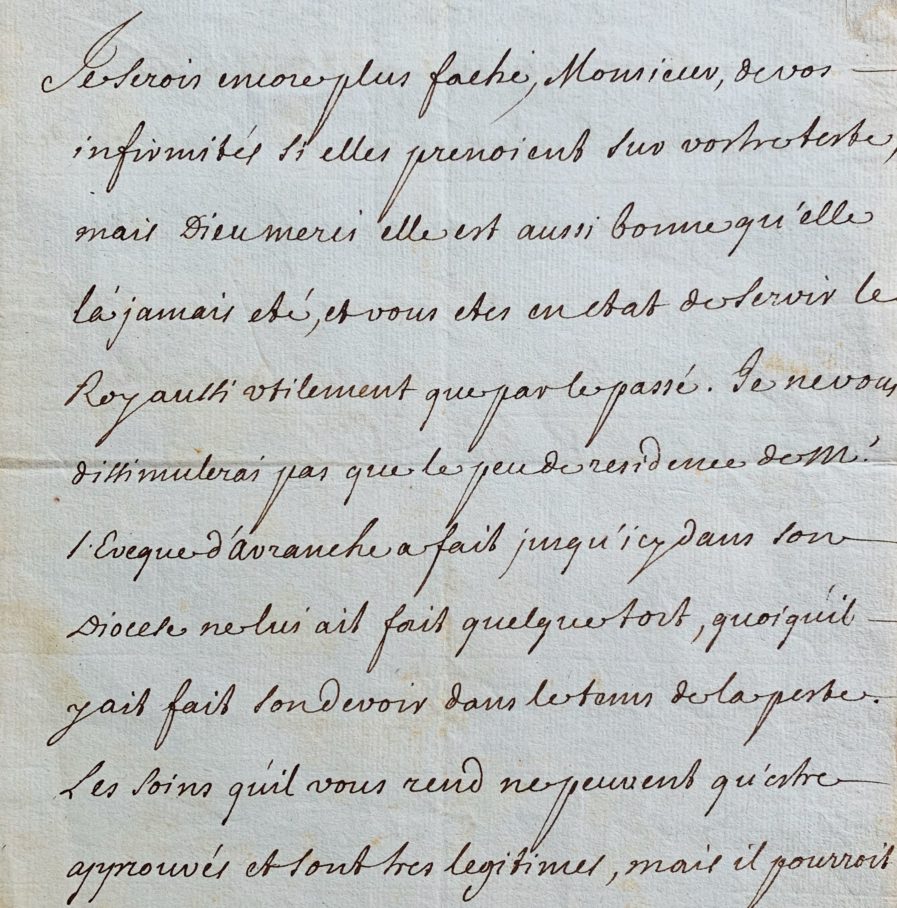 Je serois encore plus faché, Monsieur, de vos
infirmités si elles prenoient sur vostre teste,
mais Dieu merci elle est aussi bonne qu'elle
l'a jamais eté, et vous etes en etat de servir le
Roy aussi utilement que par le passé. Je ne vous
dissimulerai pas que le peu de residence de Mr.
l'Eveque d'Avranche a fait jusqu'icy dans son
Diocese ne lui ait fait quelque tort, quoiqu'il
y ait fait son devoir dans le tems de la peste.
Les soins qu'il vous rend ne peuvent qu'estre
approuvés et sont tres legitimes, mais il pourroit